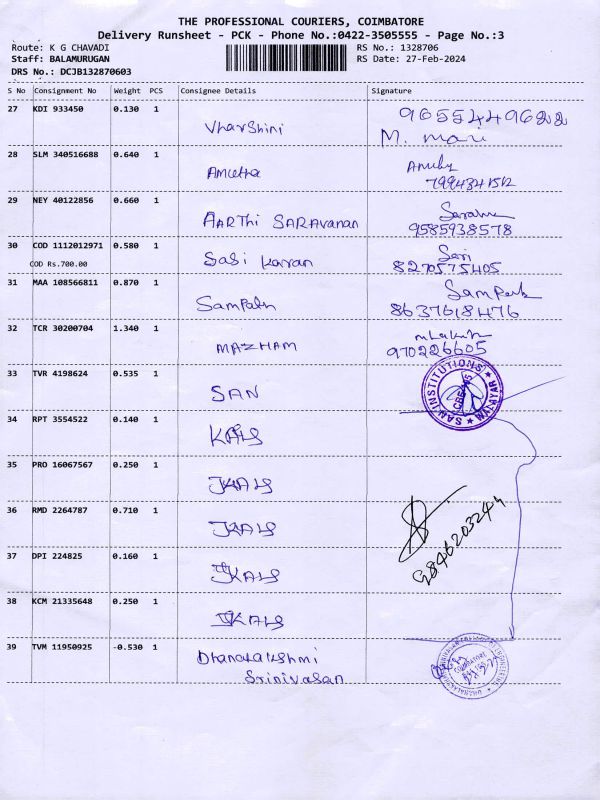 THE PROFESSIONAL COURIERS, COIMBATORE
Delivery Runsheet - PCK - Phone No.:0422-3505555 - Page No.:3
Route: K G CHAVADI RS No.: 1328706
Staff: BALAMURUGAN RS Date: 27-Feb-2024
DRS No.: DCJB132870603
S No Consignment No Weight PCS Consignee Details Signature
27 KDI 933450 0.130 1 Vharshini 9655449622
M. mari
28 SLM 340516688 0.640 1 Amutha
29 NEY 40122856 0.660 1 AARTHI SARAVANAN
9585938578
30 COD 1112012971 0.580 1 Sasi Karan Sasi
COD Rs.700.00 8270575405
31 MAA 108566811 0.870 1 Sampath
8637618476
32 TCR 30200704 1.340 1 MAZHAM
970226605
33 TVR 4198624 0.535 1 SAN
SAN INSTITUTIONS ★ WALAYAR ★
34 RPT 3554522 0.140 1 KALS
35 PRO 16067567 0.250 1 JKALS
36 RMD 2264787 0.710 1 JKALS
37 DPI 224825 0.160 1 JKALS
38 KCM 21335648 0.250 1 JKALS
39 TVM 11950925 -0.530 1 Dhanalakshmi
Srinivasan